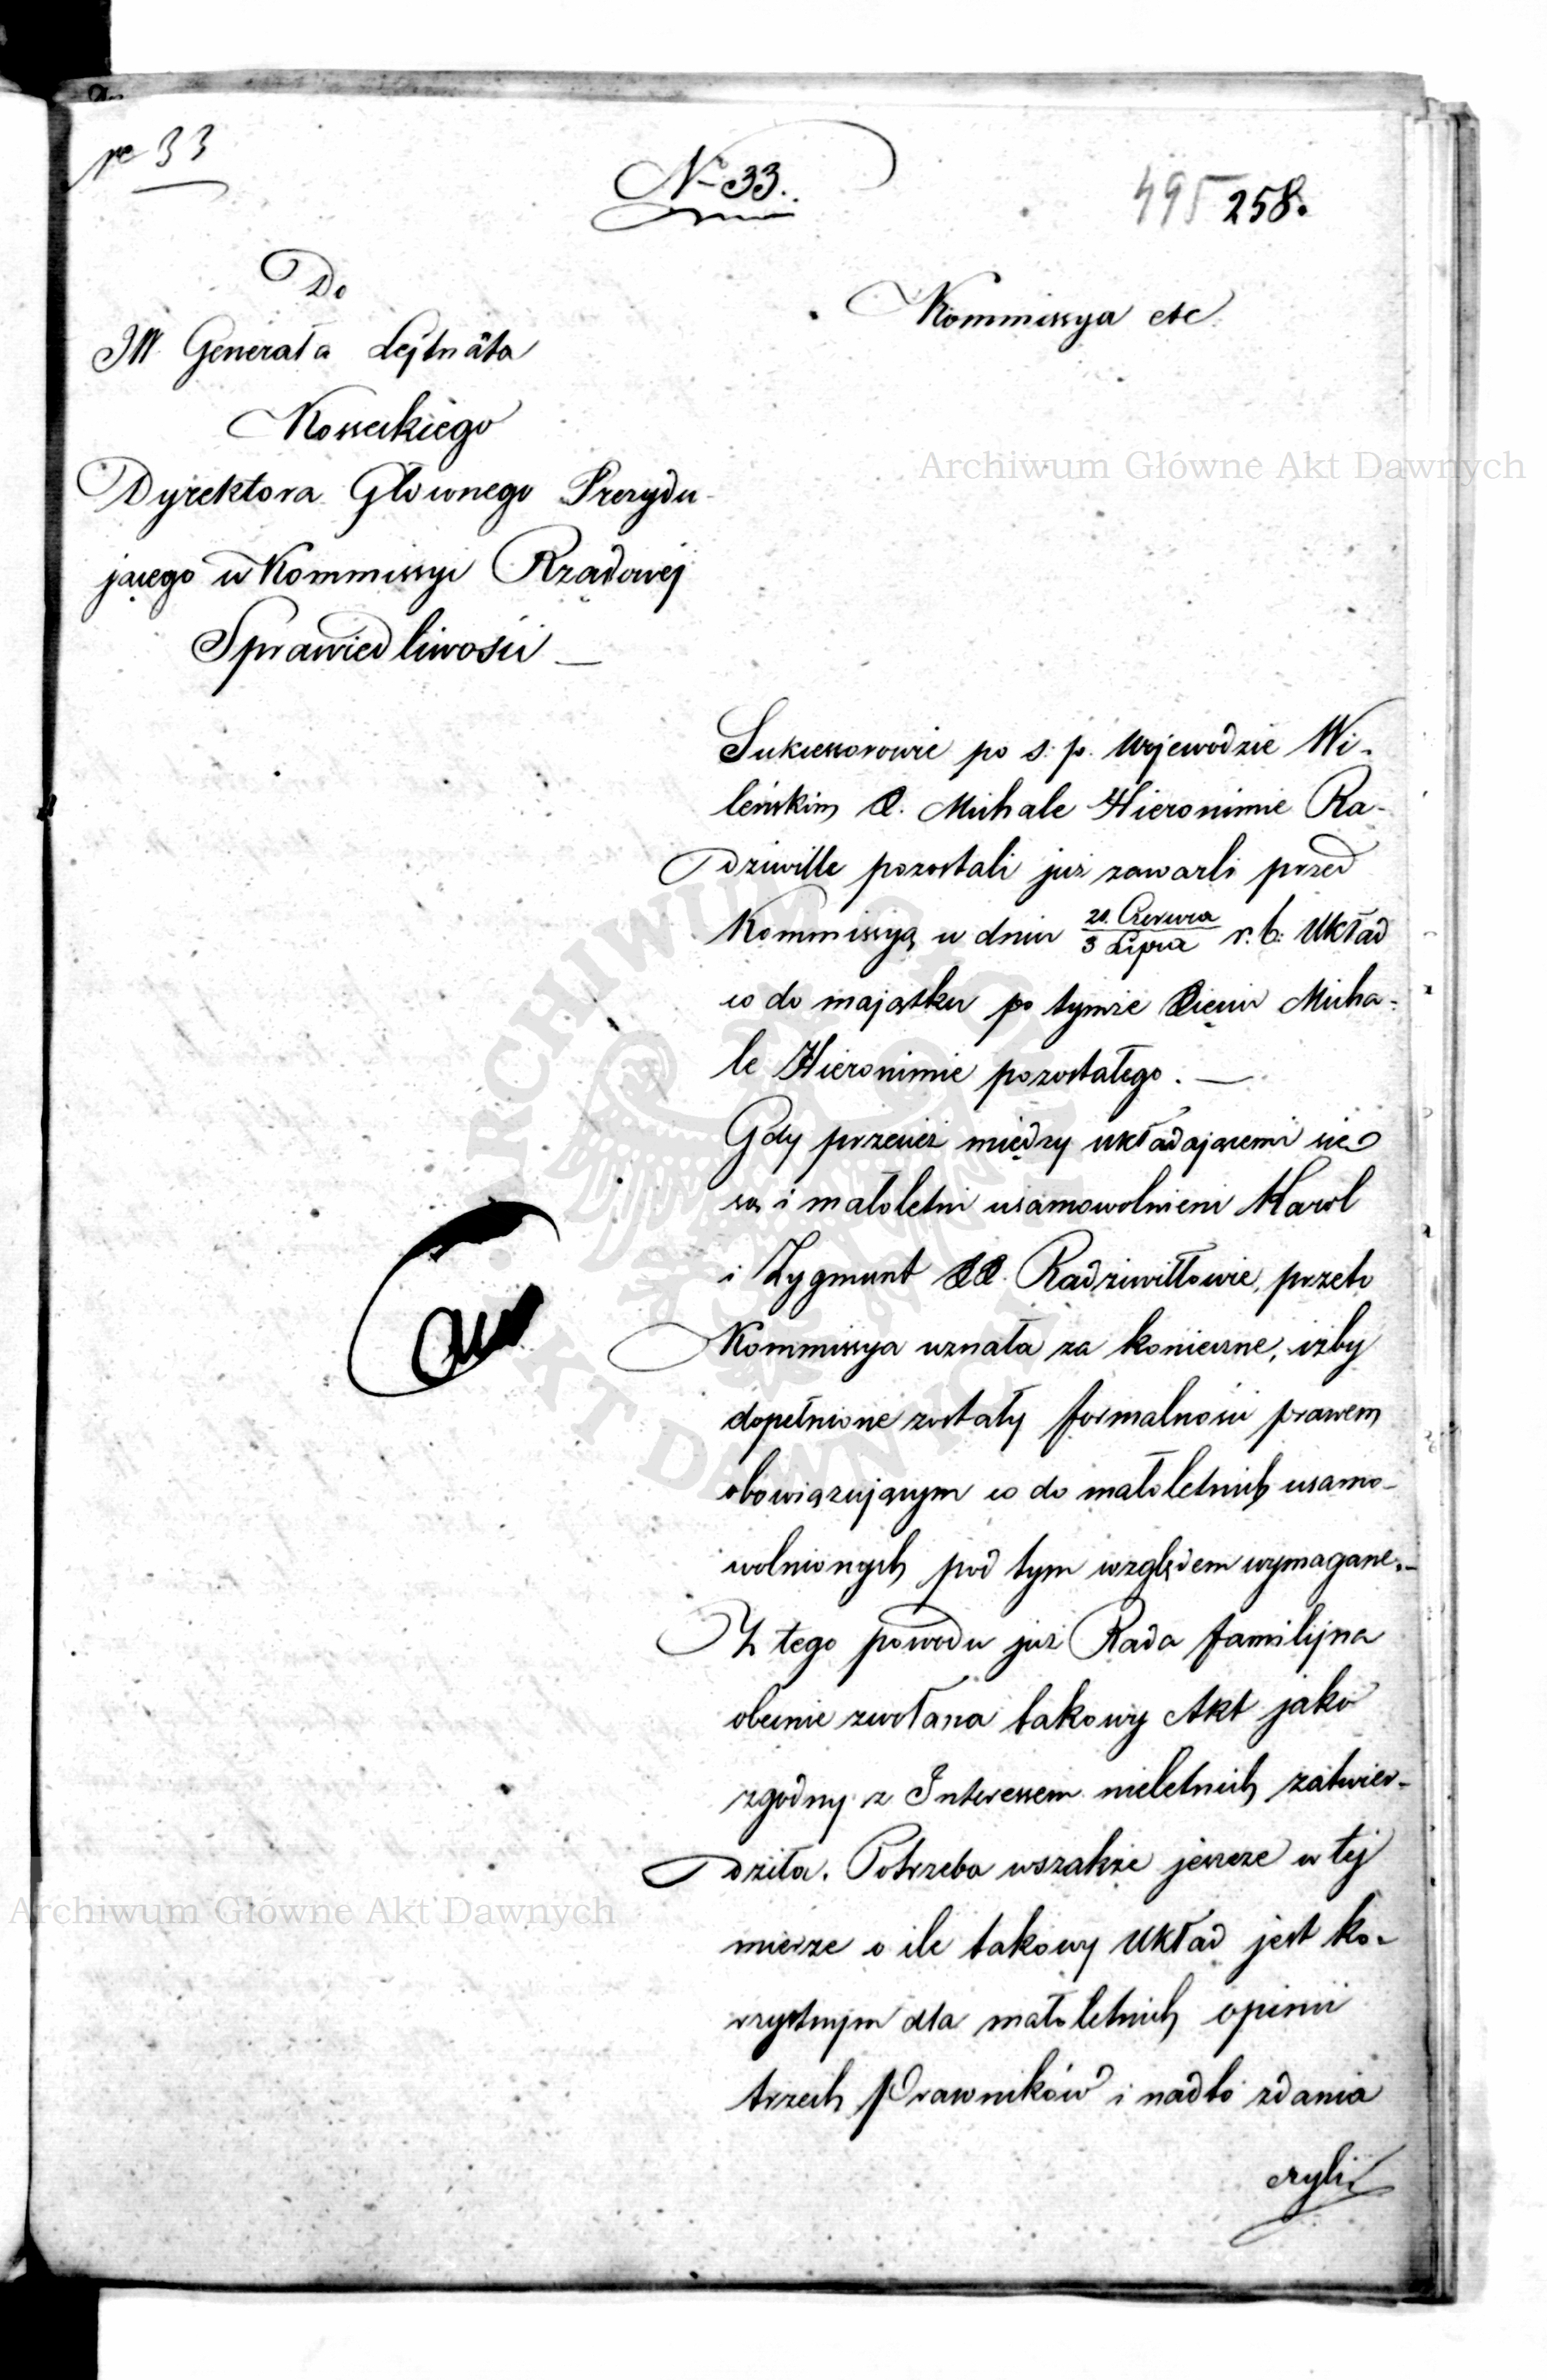 N 33.
495 258.
Do
JW Generała Lejtnāta
Kosseckiego
Dyrektora Głównego Prezydu-
jącego w Kommissyi Rządowej
Sprawiedliwości —
Kommissya etc
Sukcessorowie po s. p. Wojewodzie Wi-
leńskim X. Michale Hieronimie Ra-
dziwille pozostali już zawarli przed
Kommissyą w dniu 21. Czerwca / 3 Lipca r. b. Układ
co do majątku po tymże Xięciu Micha-
le Hieronimie pozostałego. —
Gdy przecież między układającemi się
są i małoletni usamowolnieni Karol
i Zygmunt XX. Radziwiłłowie, przeto
Kommissya uznała za konieczne, iżby
dopełnione zostały formalności prawem
obowiązującym co do małoletnich usamo-
wolnionych pod tym względem wymagane. —
Z tego powodu już Rada familijna
obecnie zwołana takowy Akt jako
zgodny z Interessem nieletnich zatwier-
dziła. Potrzeba wszakże jeszcze w tej
mierze o ile takowy Układ jest ko-
rzystnym dla małoletnich opinii
trzech Prawników i nadto zdania
czyli
Archiwum Główne Akt Dawnych
Archiwum Główne Akt Dawnych
ARCHIWUM GŁÓWNE AKT DAWNYCH